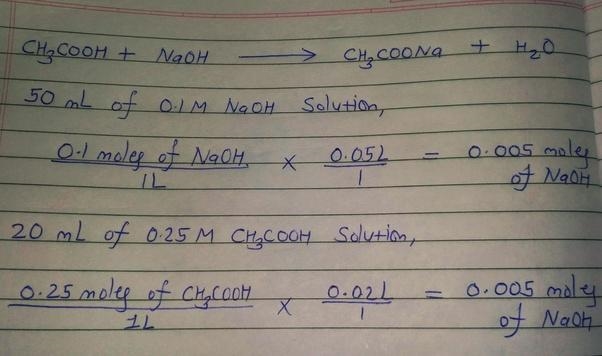 CH3COOH + NaOH ⟶ CH3COONa + H2O
50 mL of 0.1M NaOH Solution,
0.1 moles of NaOH / 1L × 0.05L / 1 = 0.005 moles of NaOH
20 mL of 0.25 M CH3COOH Solution,
0.25 moles of CH3COOH / 1L × 0.02L / 1 = 0.005 moles of NaOH